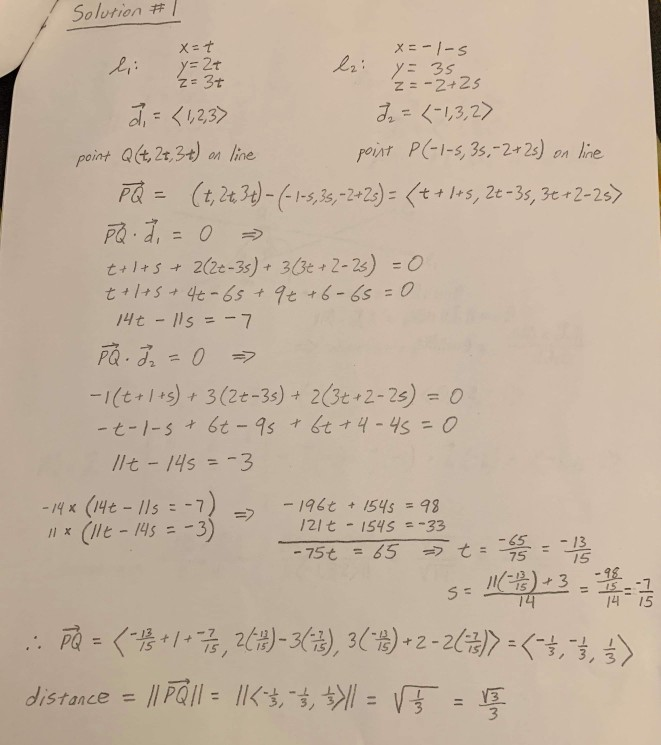 Solution #1
x=t x=-1-s
l₁: y=2t l₂: y= 3s
z=3t z=-2+2s
d⃗₁ = ⟨1,2,3⟩ d⃗₂ = ⟨-1,3,2⟩
point Q(t,2t,3t) on line point P(-1-s,3s,-2+2s) on line
P͞Q⃗ = (t,2t,3t)-(-1-s,3s,-2+2s)= ⟨t+1+s, 2t-3s, 3t+2-2s⟩
PQ⃗ · d⃗₁ = 0 ⇒
t+1+s + 2(2t-3s)+ 3(3t+2-2s) = 0
t+1+s + 4t-6s + 9t +6-6s = 0
14t - 11s = -7
PQ⃗ · d⃗₂ = 0 ⇒
-1(t+1+s) + 3(2t-3s) + 2(3t+2-2s) = 0
-t-1-s + 6t-9s + 6t+4-4s = 0
11t - 14s = -3
-14 × (14t - 11s = -7) ⇒ -196t + 154s = 98
11 × (11t - 14s = -3) 121t - 154s = -33
-75t = 65 ⇒ t = -65/75 = -13/15
s = (11(-13/15)+3)/14 = (-98/15)/14 = -7/15
∴ PQ⃗ = ⟨-13/15+1+-7/15, 2(-13/15)-3(-7/15), 3(-13/15)+2-2(-7/15)⟩ = ⟨-1/3, -1/3, 1/3⟩
distance = ||PQ⃗|| = ||⟨-1/3, -1/3, 1/3⟩|| = √(1/3) = √3/3